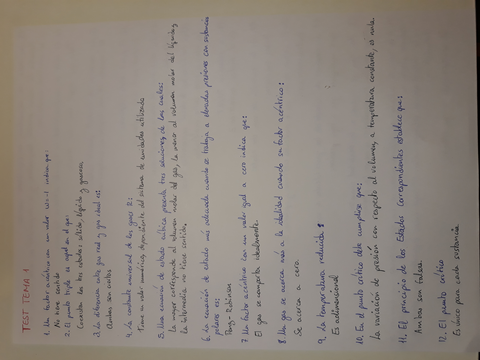 TEST TEMA 1
1. Un factor acéntrico con un valor indica que:
No tiene sentido
2. El punto triple es aquel en el que:
Coexisten los tres estados: sólido, líquido y gaseoso
3. La diferencia entre gas real y gas ideal es:
Ambas son ciertas
4. La constante universal de los gases R:
Tiene un valor numérico dependiente del sistema de unidades utilizado
5. Una ecuación de estado cúbica presenta tres soluciones, de las cuales:
La mayor corresponde al volumen molar del gas, la menor al volumen molar del líquido y
la intermedia no tiene sentido.
6. La ecuación de estado más adecuada cuando se trabaja a elevadas presiones con sustancias
polares es:
Peng-Robinson
7. Un factor acéntrico con un valor igual a cero indica que:
El gas se comporta idealmente.
8. Un gas se acerca más a la idealidad cuando su factor acéntrico:
Se acerca a cero.
9. La temperatura reducida:
Es adimensional
10. En el punto crítico debe cumplirse que:
La variación de presión con respecto al volumen, a temperatura constante, es nula.
11. El principio de los Estados Correspondientes establece que:
Ambas son falsas
12. El punto crítico
Es único para cada sustancia